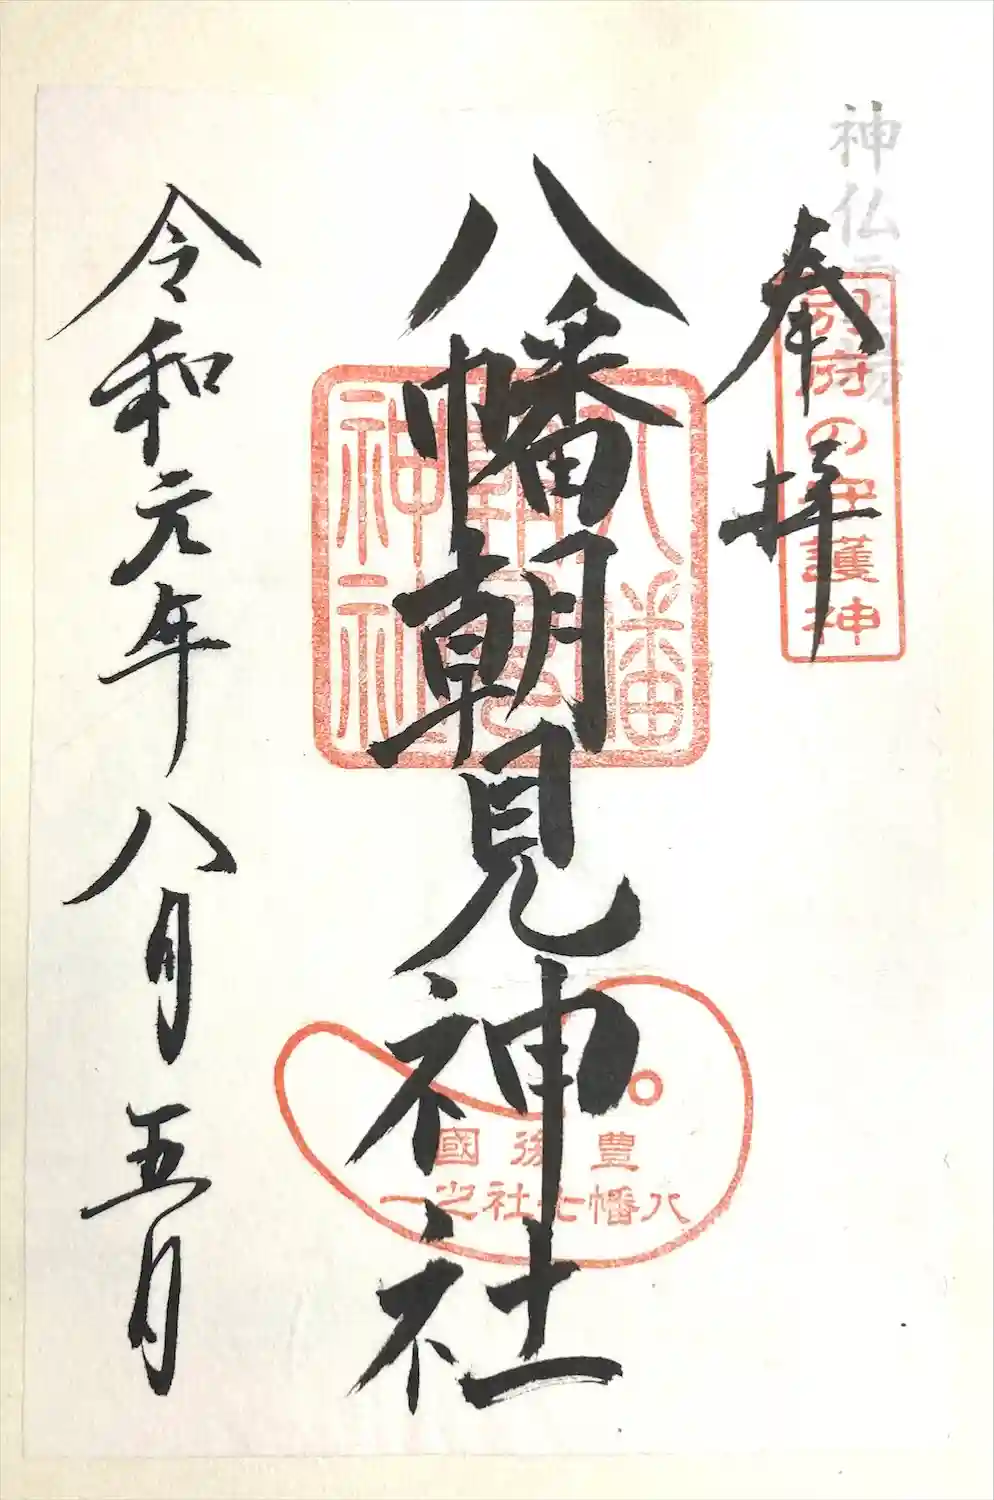 神仏霊場
奉拝
別府の守護神
八幡朝見神社
八幡朝見神社
豊後國
八幡七社之一
令和元年八月五日